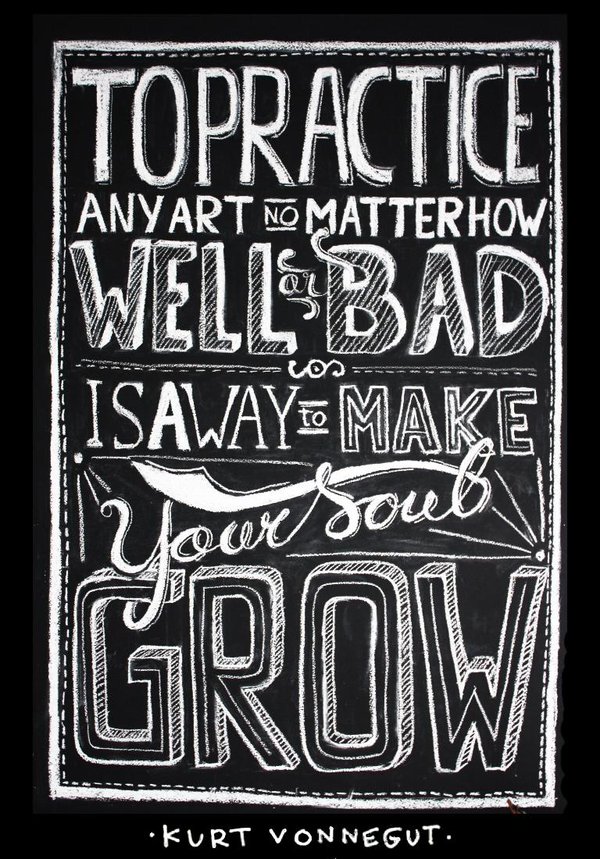 TO PRACTICE
ANY ART NO MATTER HOW
WELL or BAD
IS A WAY to MAKE
Your Soul
GROW
·KURT VONNEGUT·